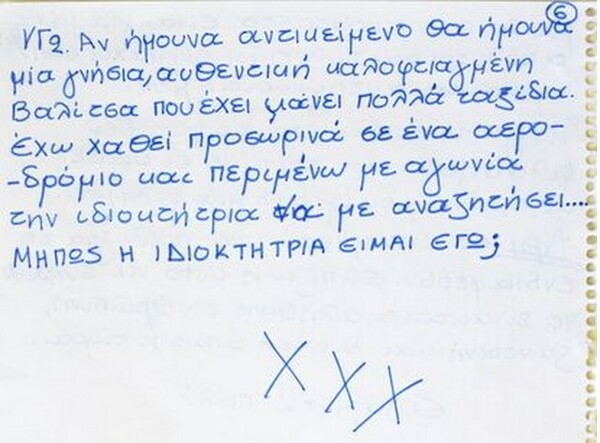 6
ΥΓ2. Αν ήμουνα αντικείμενο θα ήμουνα
μία γνήσια, αυθεντική καλοφτιαγμένη
Βαλίτσα που έχει κάνει πολλά ταξίδια.
Έχω χαθεί προσωρινά σε ένα αερο-
-δρόμιο και περιμένω με αγωνία
την ιδιοκτήτρια να με αναζητήσει....
ΜΗΠΩΣ Η ΙΔΙΟΚΤΗΤΡΙΑ ΕΙΜΑΙ ΕΓΩ;
Χ Χ Χ